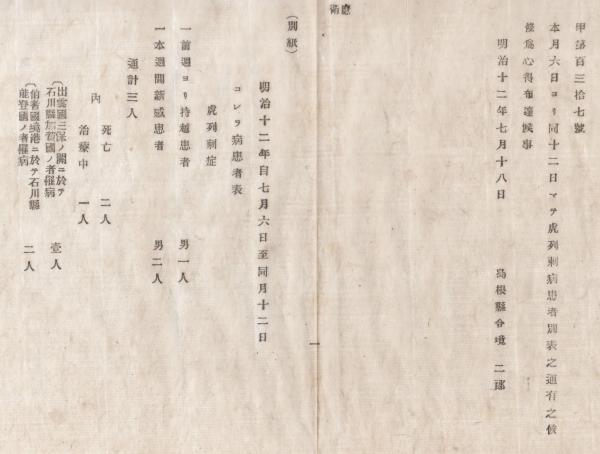 甲第百三拾七號
本月六日ヨリ同十二日マテ虎列剌病患者別表之通有之候
條爲心得布達候事
明治十二年七月十八日
島根縣令境二郎
應術
(別紙)
明治十二年自七月六日至同月十二日
コレラ病患者表
虎列剌症
一前週ヨリ持越患者 男一人
一本週間新感患者 男二人
通計三人
内 死亡 二人
治療中 一人
〔出雲國三保ノ關ニ於テ
石川縣加賀國ノ者罹病 壹人
〔伯耆國境港ニ於テ石川縣
能登國ノ者罹病 二人
一